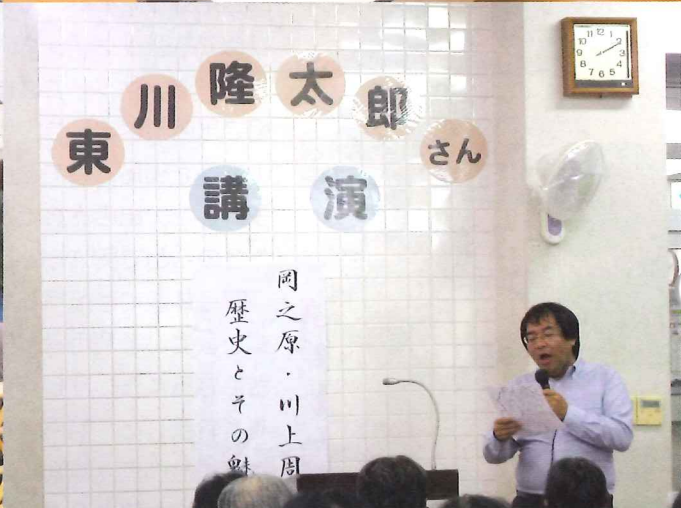 東川隆太郎さん
講演
岡之原・川上周
歴史とその魅
12
1
2
3
4
5
6
7
8
9
10
11